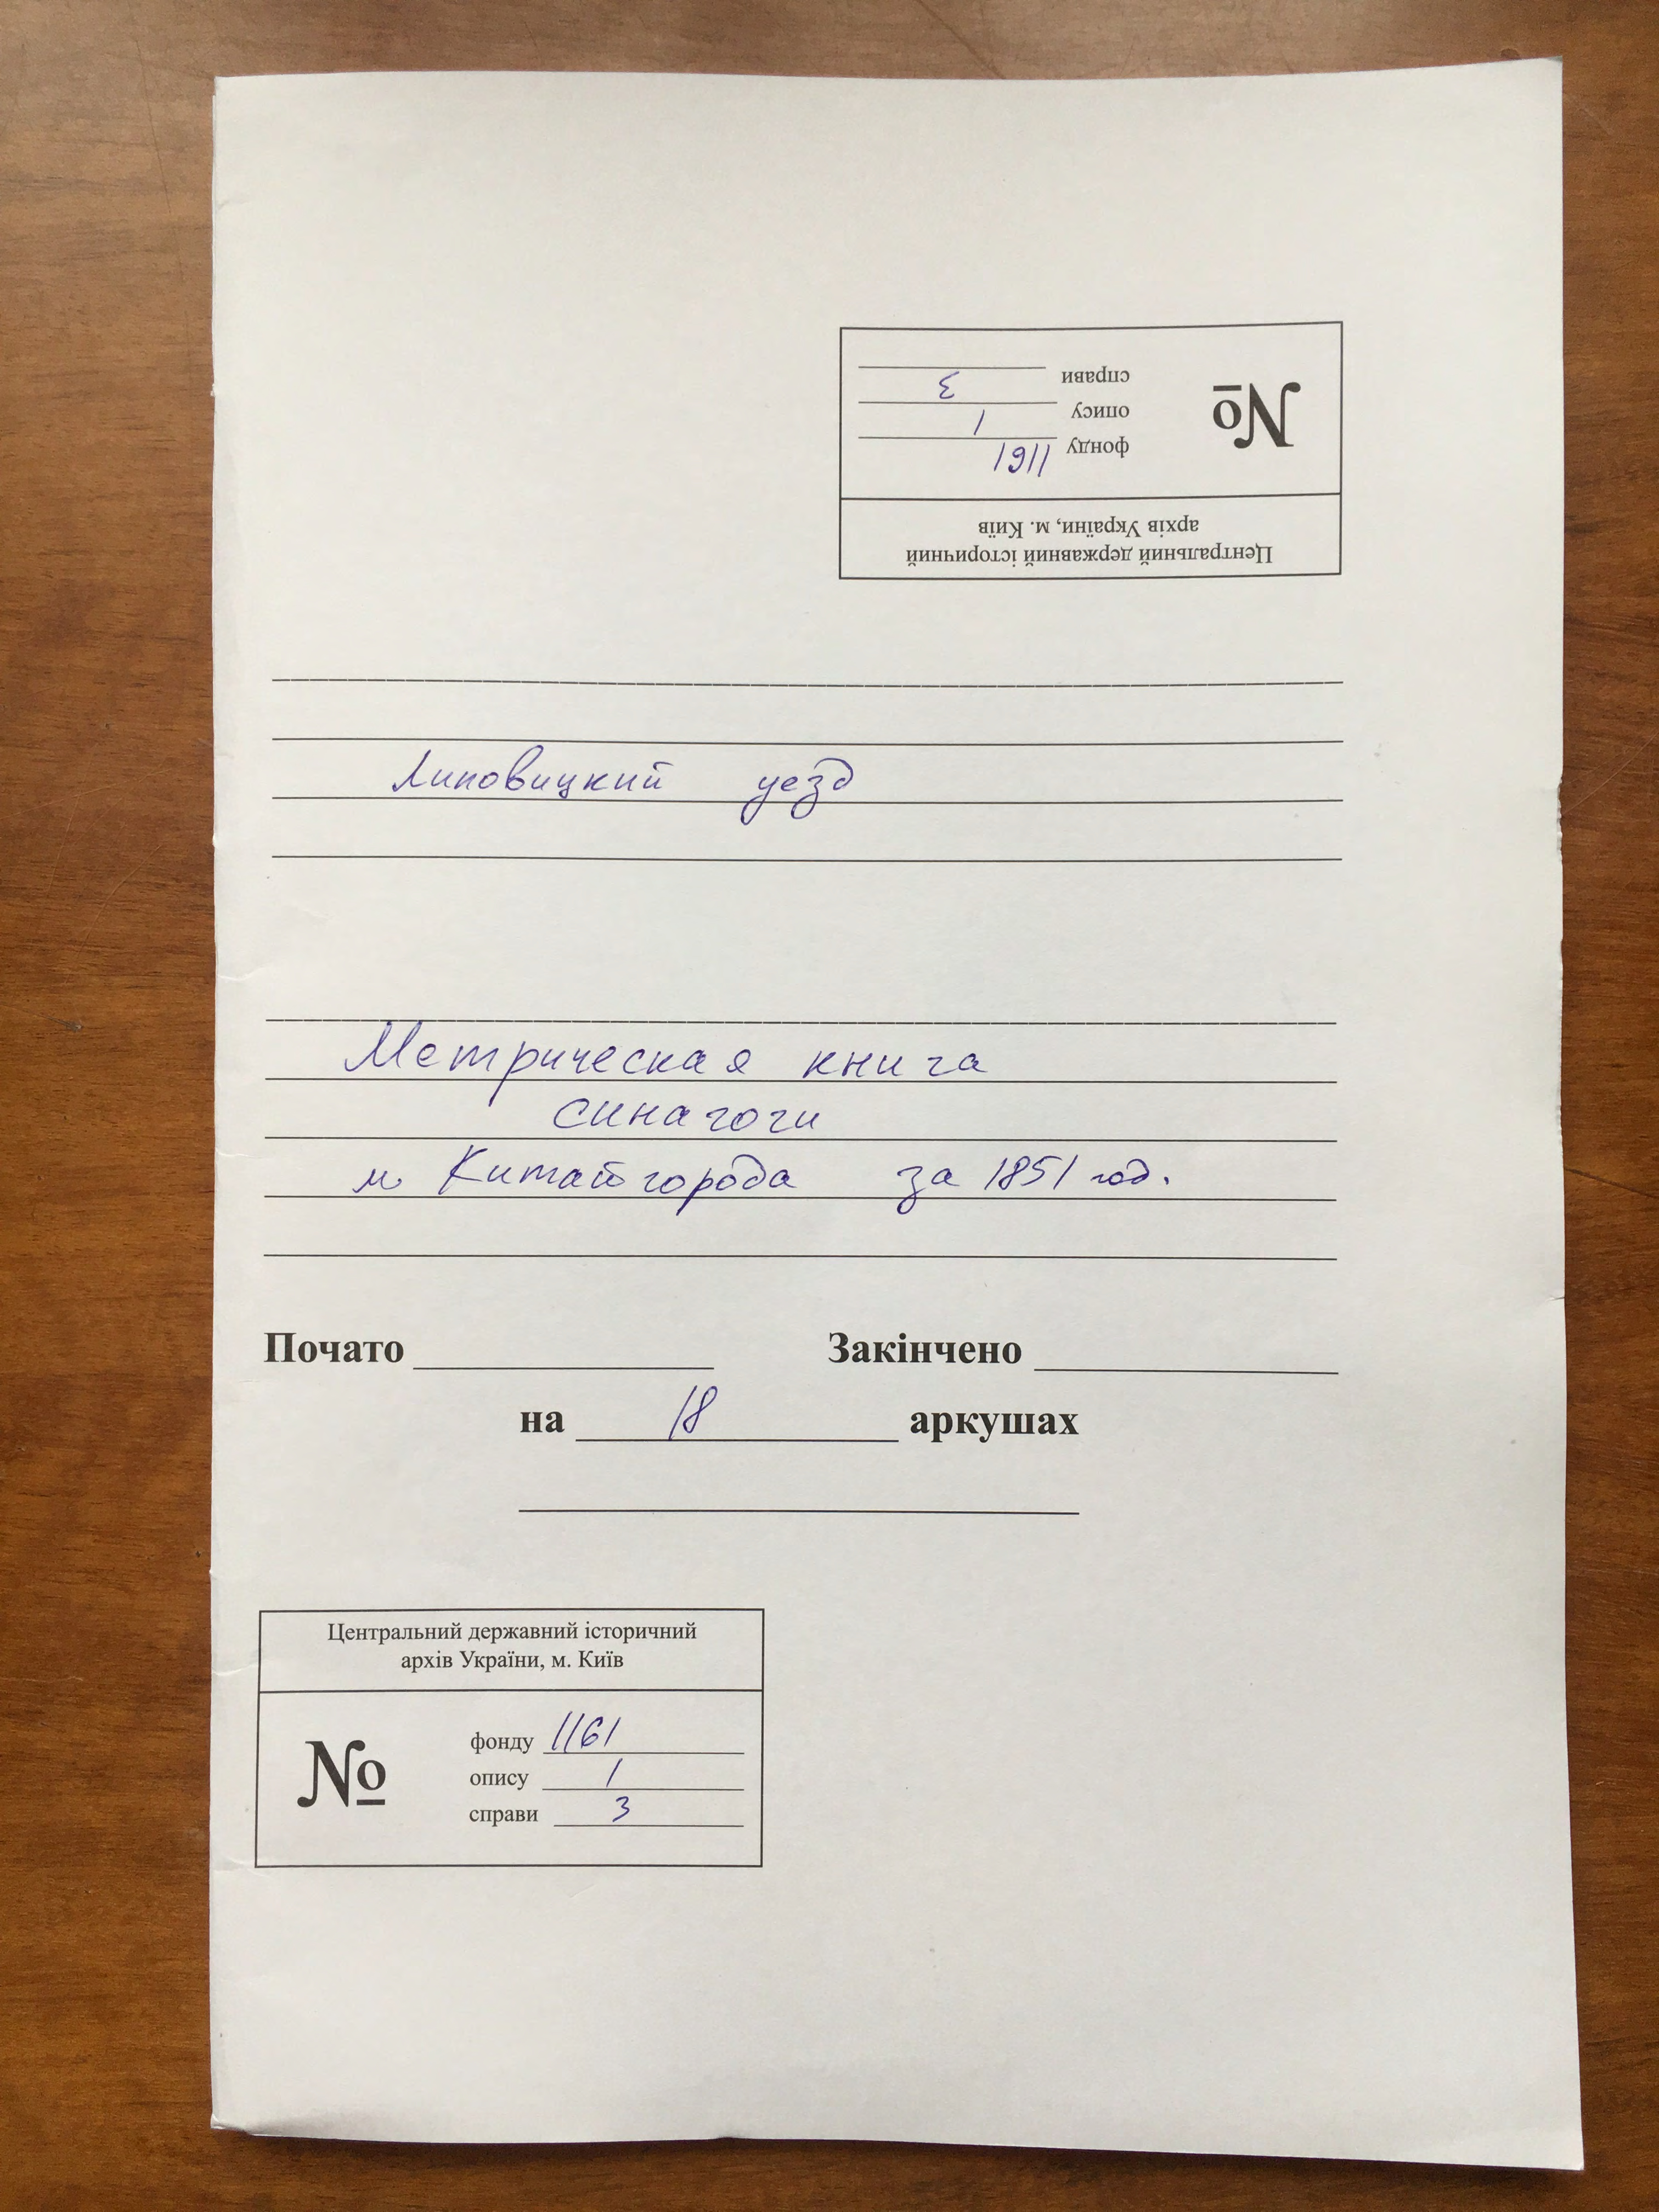 справи
опису 3
фонду 1
1161
№
Центральний державний історичний
архів України, м. Київ
Липовицкий уезд
Метрическая книга
синагоги
м Китайгорода за 1851 год.
Почато Закінчено
на 18 аркушах
Центральний державний історичний
архів України, м. Київ
№
фонду 1161
опису 1
справи 3